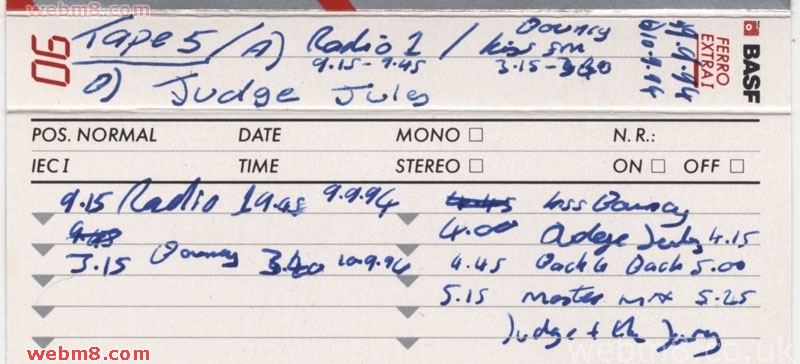 webm8.com
Tape 5 / A) Radio 1 / Kiss FM Bouncy 9.9.94
9.15 - 9.45 3.15 - 3.40 10.9.94
B) Judge Jules
90
FERRO EXTRA I
BASF
POS. NORMAL DATE MONO N.R.:
IEC I TIME STEREO ON OFF
9.15 Radio 1 9.45 9.9.94
Kiss Bouncy
4.00 Judge Jules 4.15
3.15 Bouncy 3.40 10.9.94
4.45 Back 6 Back 5.00
5.15 master mix 5.25
Judge + the Jury
webm8.com